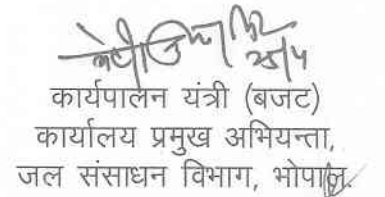 25/4
कार्यपालन यंत्री (बजट)
कार्यालय प्रमुख अभियन्ता,
जल संसाधन विभाग, भोपाल.